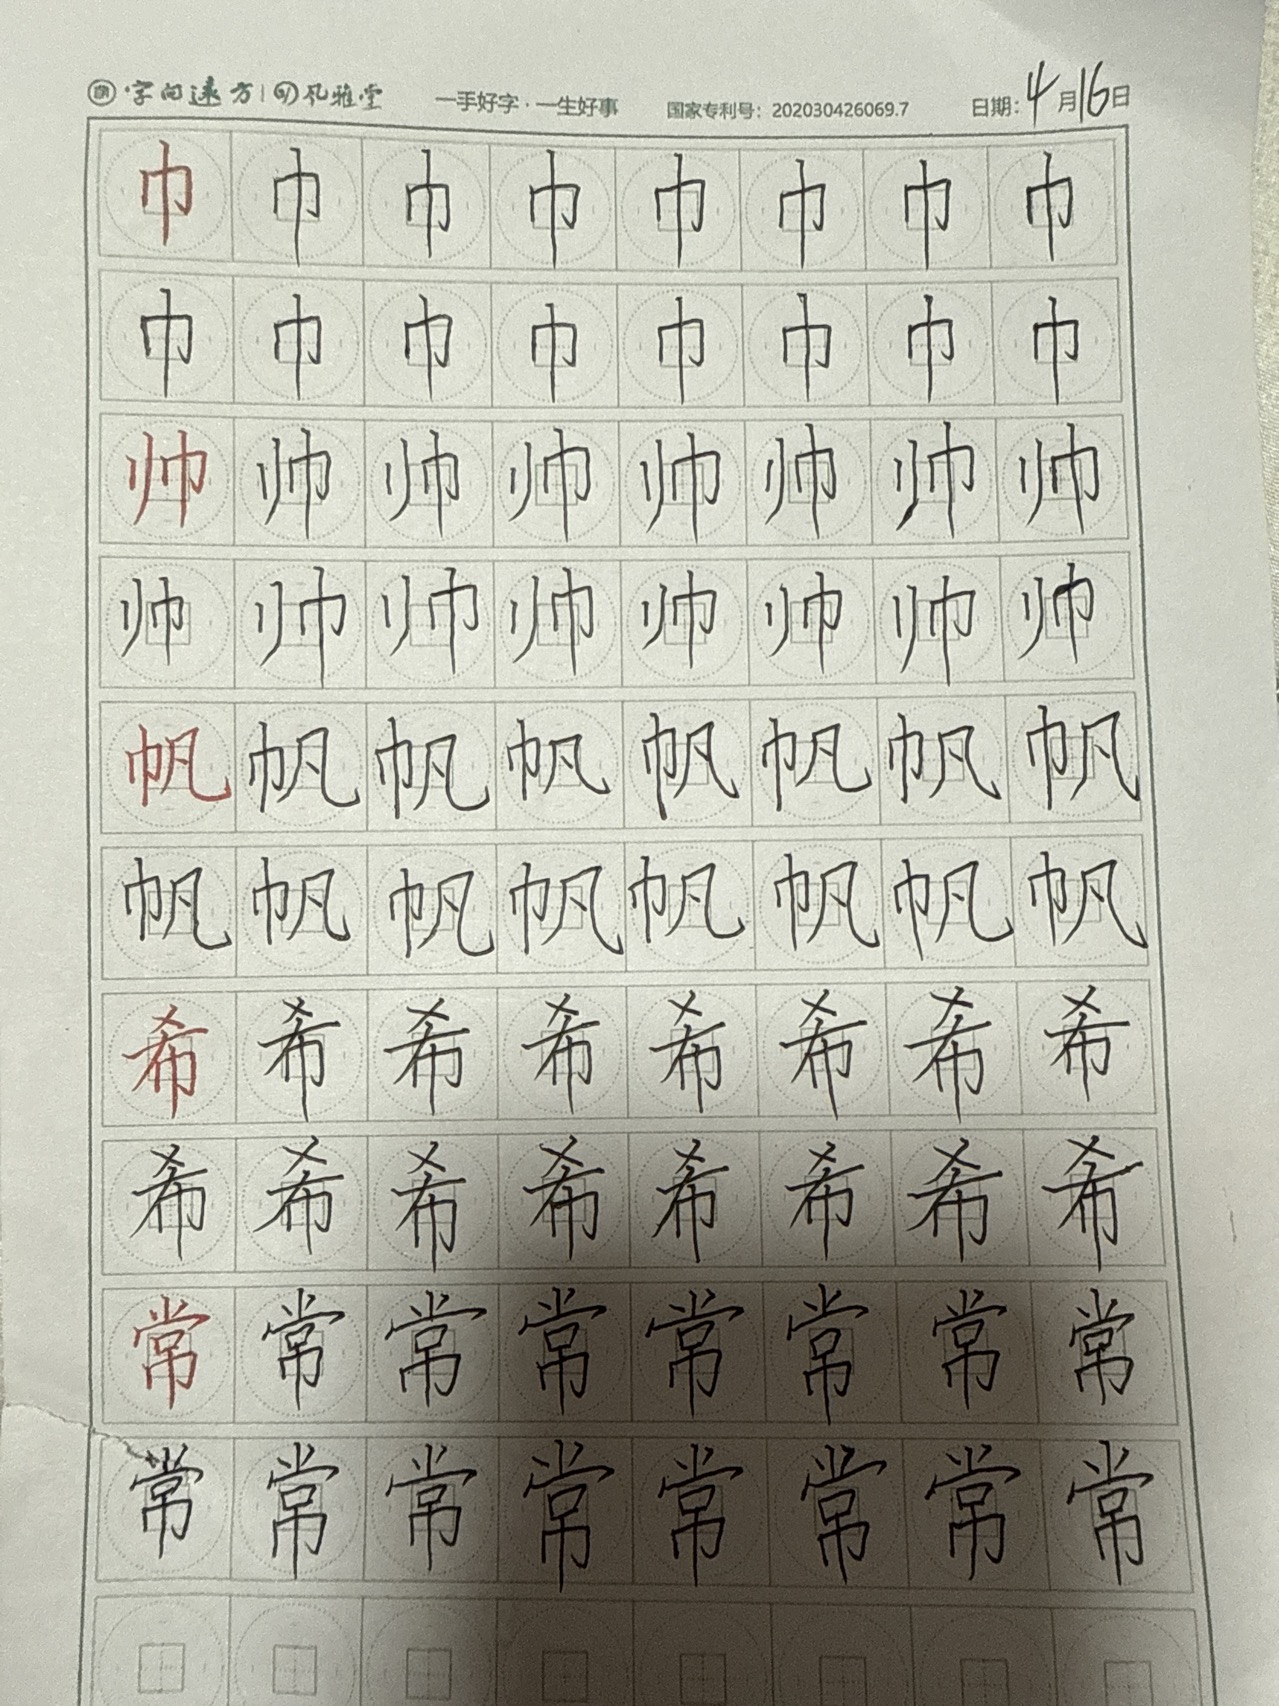 字向远方 风雅堂 一手好字·一生好事 国家专利号：202030426069.7 日期：4月16日
巾 巾 巾 巾 巾 巾 巾 巾
巾 巾 巾 巾 巾 巾 巾 巾
帅 帅 帅 帅 帅 帅 帅 帅
帅 帅 帅 帅 帅 帅 帅 帅
帆 帆 帆 帆 帆 帆 帆 帆
帆 帆 帆 帆 帆 帆 帆 帆
希 希 希 希 希 希 希 希
希 希 希 希 希 希 希 希
常 常 常 常 常 常 常 常
常 常 常 常 常 常 常 常